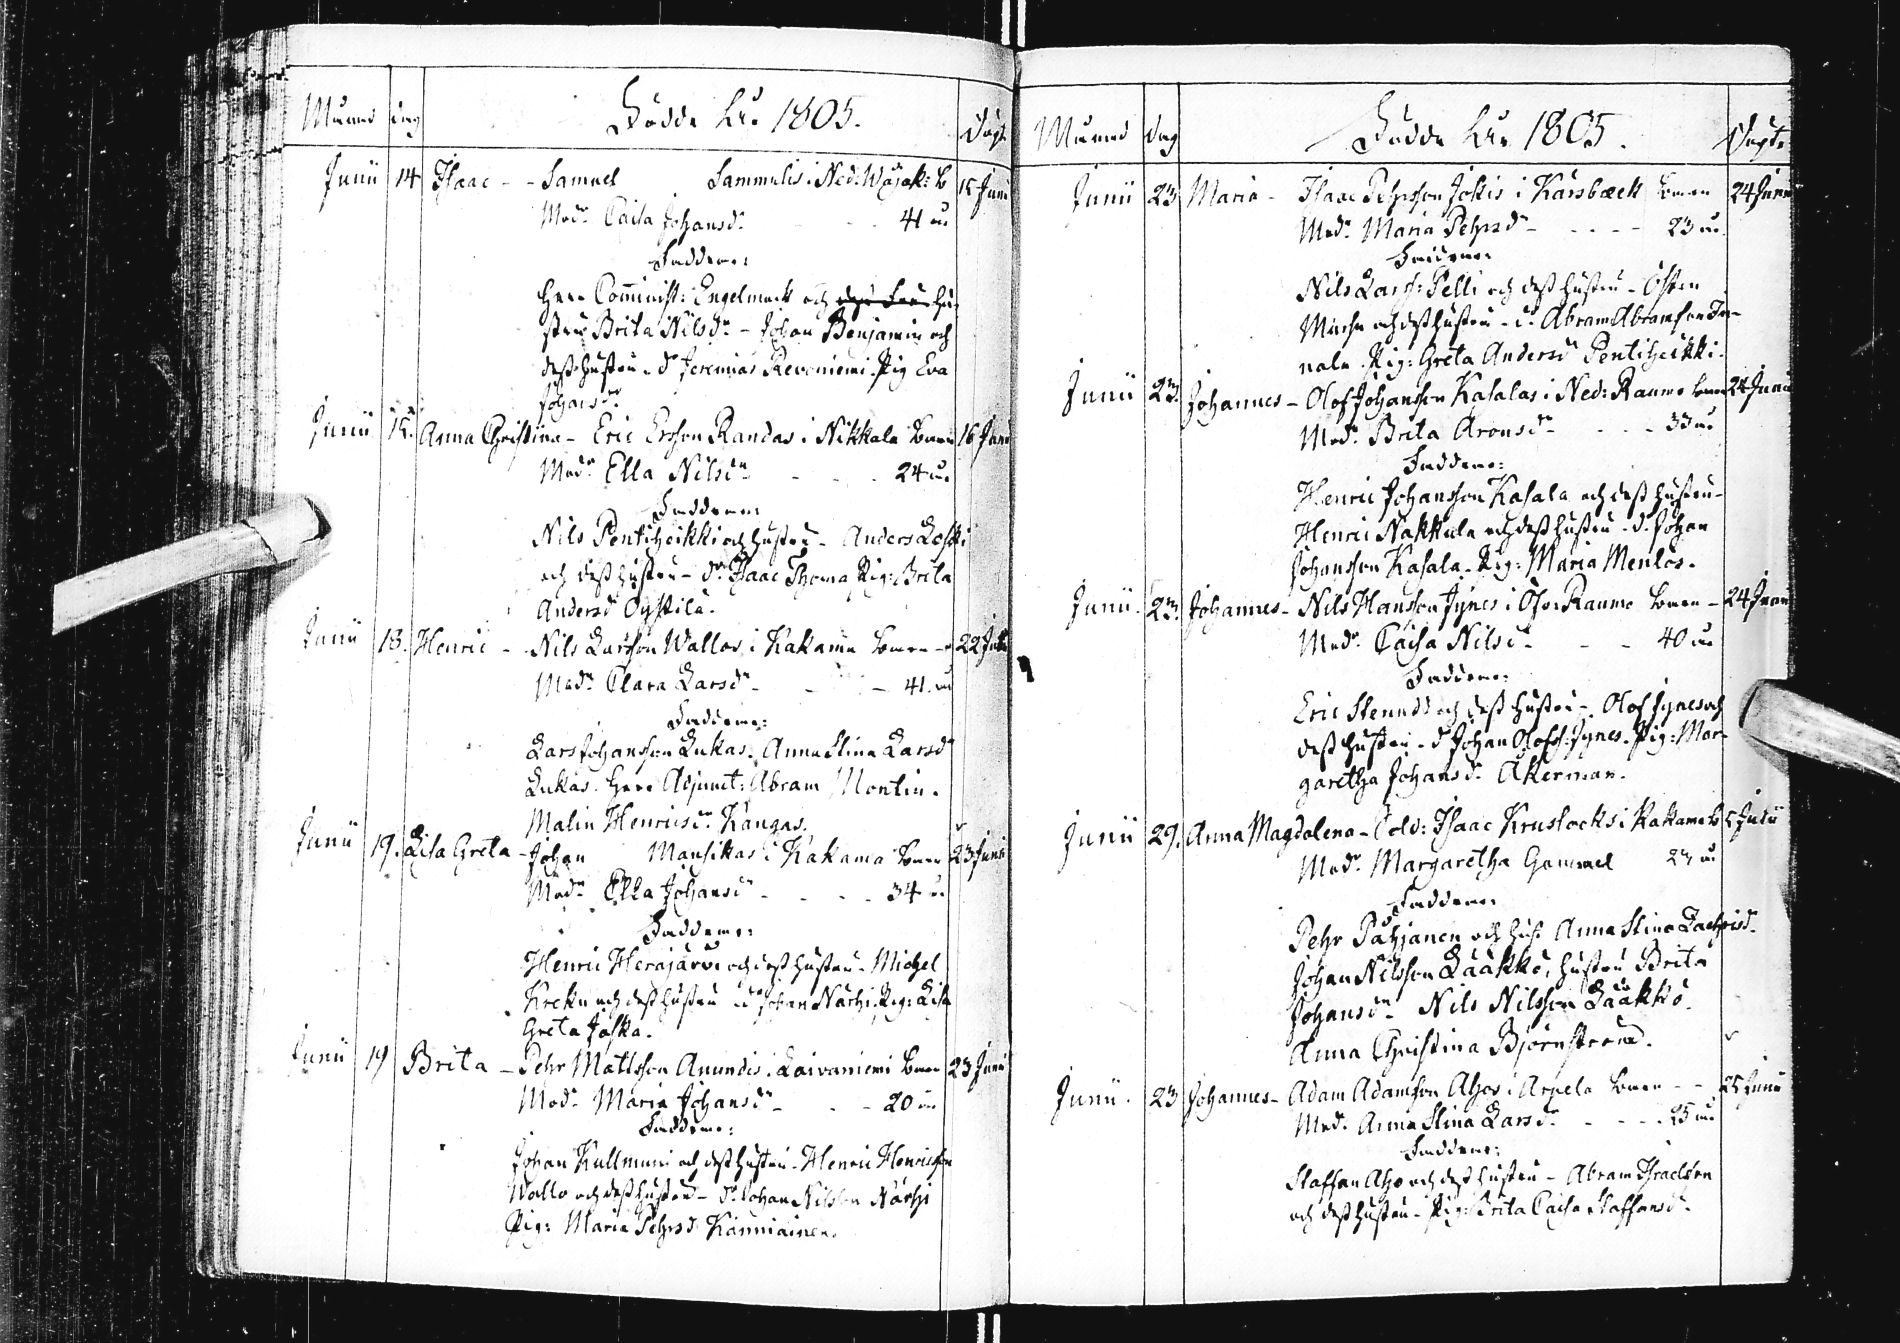 Månad dag Födde År 1805. Döpt
Junii 14 Isaac - - Samuel Sammulis i Ned: Wojak: b 15 Junii
Modr Caisa Johansdr - - - 41 år
Faddrar:
Herr Comminist: Engelmark och dess Fru hu-
stru Brita Nilsdr - Johan Benjamin och
dess hustru. dr Jeremias Revoniemi. Pig Eva
Johansdr
Junii 15. Anna Christina - Eric Ersson Randas i Nikkala bonen 16 Junii
Modr Ella Nilsdr - - - 24 år
Faddrar:
Nils Pentiheikki och hustru - Anders Loski
och dess hustru - dr Isaac Thoma Pig: Brita
Andersd
Junii 18. Henric - Nils Larsson Wallos i Kakama bonen - 22
Modr Clara Larsdr - - - 41. år
Faddrar:
Lars Johansson Lukas. Anna Stina Larsd
Lukas. Herr Adjunct: Abram Montin.
Malin Henricsdr Kangas.
Junii 19. Lisa Greta - Johan Mansikas i Kakama bonen 23 Junii
Modr Ella Johansdr - - - 34 år
Faddrar:
Henric Herajärvi och dess hustru. Michel
Kreku och dess hustru dr Johan Närhi. Pig: Lisa
Greta Joska.
Junii 19 Brita - Pehr Mattsson Anundis i Laivaniemi bonen 23 Junii
Modr Maria Johansdr - - - 20 år
Faddrar:
Johan Kullmuni och dess hustru. Henric Henricsson
Wallo och dess hustru - dr Johan Nilsson Närhi
Pig: Maria Pehrsd Känniäinen.
Månad dag Födde År 1805. Döpt
Junii 23 Maria - Isaac Pehrsson Jokis i Karsbæck bonen 24 Junii
Modr Maria Pehrsdr - - - - 23 år.
Faddrar:
Nils Larss: Pelli och dess hustru - Östen
och dess hustru - dr Abram Abramsson
Pig: Greta Andersd Pentiheikki.
Junii 23. Johannes - Olof Johansson Kasalas i Ned: Raumo bonen 24 Junii
Modr Brita Aronsdr - - - 33 år
Faddrar:
Henric Johansson Kasala och dess hustru -
Henric Nakkula och dess hustru - dr Johan
Johansson Kasala. Pig: Maria Menlös.
Junii. 23. Johannes - Nils Hansson Jynes i Öfv: Raumo bonen - 24 Junii
Modr Caisa Nilsdr - - - 40 år
Faddrar:
Eric och dess hustru - Olof Jynes och
dess hustru - dr Johan Olofss: Jynes. Pig: Mar-
garetha Johansdr Åkerman.
Junii 29. Anna Magdalena - Sold: Isaac Kruslocks i Kakama b 5 Julii
Modr Margaretha Gammel 27 år
Faddrar:
Pehr Päkjänen och hust. Anna Stina Zachrisd.
Johan Nilsson Lääkkö, hustru Brita
Johansdr Nils Nilsson Lääkkö.
Anna Christina Björnström.
Junii. 23 Johannes - Adam Adamsson Ahos i Arpela bonen - - 25 Junii
Modr Anna Stina Larsdr - - - 25 år
Faddrar:
Staffan Aho och dess hustru - Abram Israelsson
och dess hustru - Pig: Brita Caisa Staffansdr.